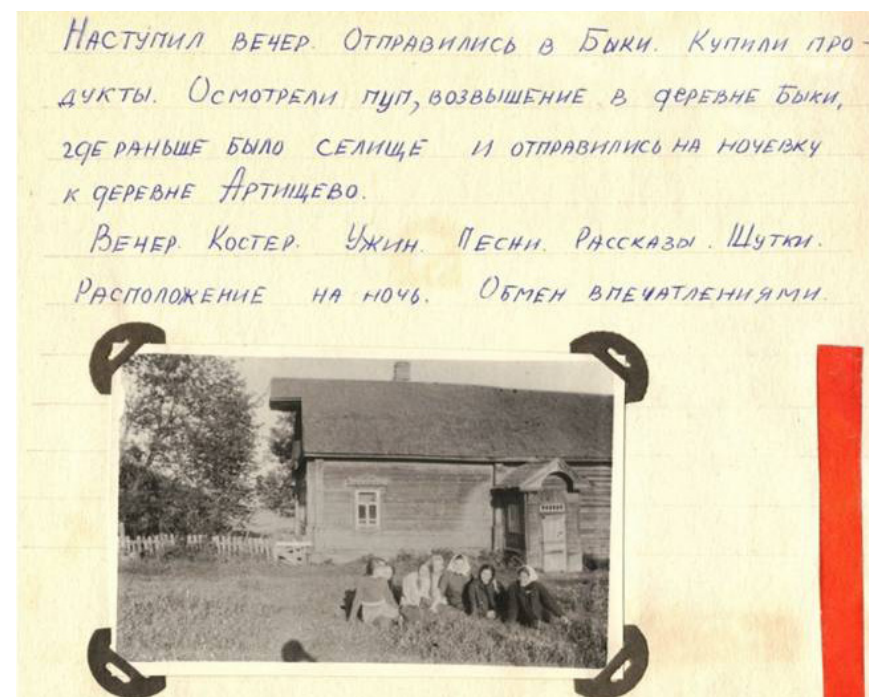 Наступил вечер. Отправились в Быки. Купили про-
дукты. Осмотрели пуп, возвышение в деревне Быки,
где раньше было селище и отправились на ночевку
к деревне Артищево.
Вечер. Костер. Ужин. Песни. Рассказы. Шутки.
Расположение на ночь. Обмен впечатлениями.